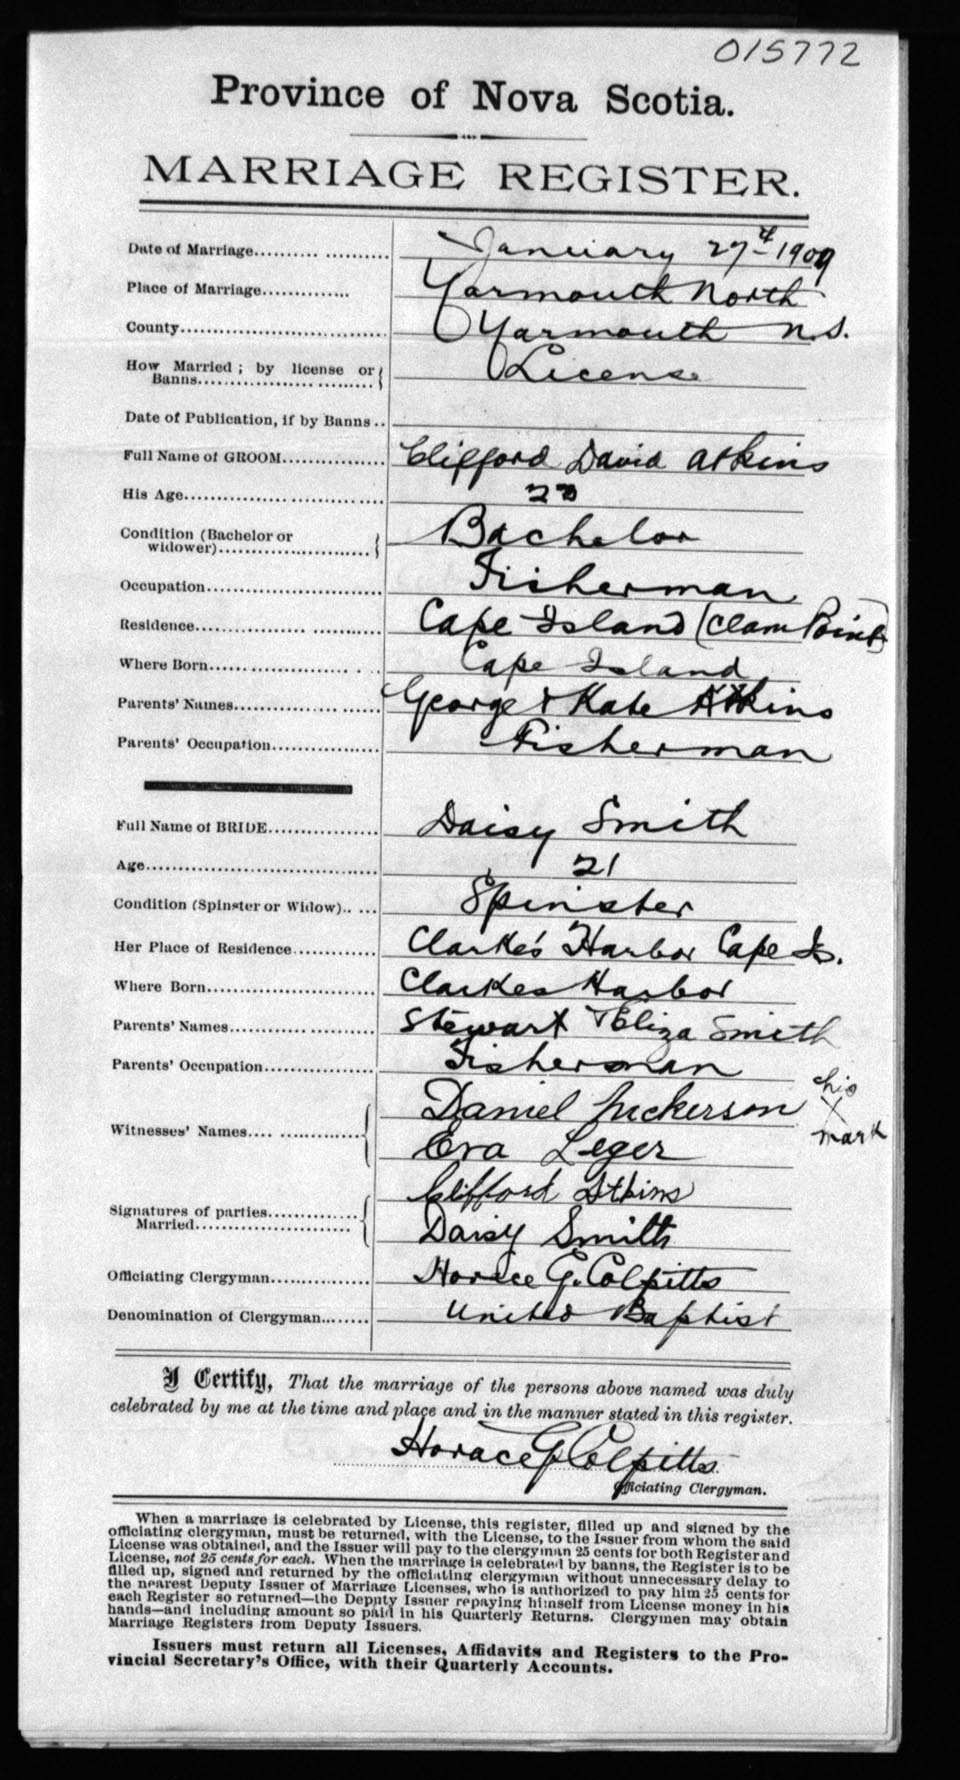 015772
Province of Nova Scotia.
MARRIAGE REGISTER.
Date of Marriage.......... .......... January 27th 1909
Place of Marriage.............. Yarmouth North
County................................ Yarmouth N.S.
How Married ; by license or Banns.................... ........... License
Date of Publication, if by Banns ..
Full Name of GROOM................ Clifford David Atkins
His Age................................
Condition (Bachelor or widower)............................ Bachelor
Occupation............................ Fisherman
Residence................ ............ Cape Island (Clam Point)
Where Born...... .............. . . Cape Island
Parents' Names.............. ....... George & Kate Atkins
Parents' Occupation................ Fisherman
Full Name of BRIDE................ Daisy Smith
Age..................................... 21
Condition (Spinster or Widow).. .... Spinster
Her Place of Residence............ Clarke's Harbor Cape Is.
Where Born........................... Clarkes Harbor
Parents' Names............ .......... Stewart & Eliza Smith
Parents' Occupation................. Fisherman
Witnesses' Names.... ............... Daniel Nickerson his X mark
Eva Leger
Signatures of parties.............. Married........................ Clifford Atkins
Daisy Smith
Officiating Clergyman............... Horace G. Colpitts
Denomination of Clergyman........ United Baptist
I Certify, That the marriage of the persons above named was duly
celebrated by me at the time and place and in the manner stated in this register.
Horace G. Colpitts
Officiating Clergyman.
When a marriage is celebrated by License, this register, filled up and signed by the
officiating clergyman, must be returned, with the License, to the Issuer from whom the said
License was obtained, and the Issuer will pay to the clergyman 25 cents for both Register and
License, not 25 cents for each. When the marriage is celebrated by banns, the Register is to be
filled up, signed and returned by the officiating clergyman without unnecessary delay to
the nearest Deputy Issuer of Marriage Licenses, who is authorized to pay him 25 cents for
each Register so returned—the Deputy Issuer repaying himself from License money in his
hands—and including amount so paid in his Quarterly Returns. Clergymen may obtain
Marriage Registers from Deputy Issuers.
Issuers must return all Licenses, Affidavits and Registers to the Pro-
vincial Secretary's Office, with their Quarterly Accounts.